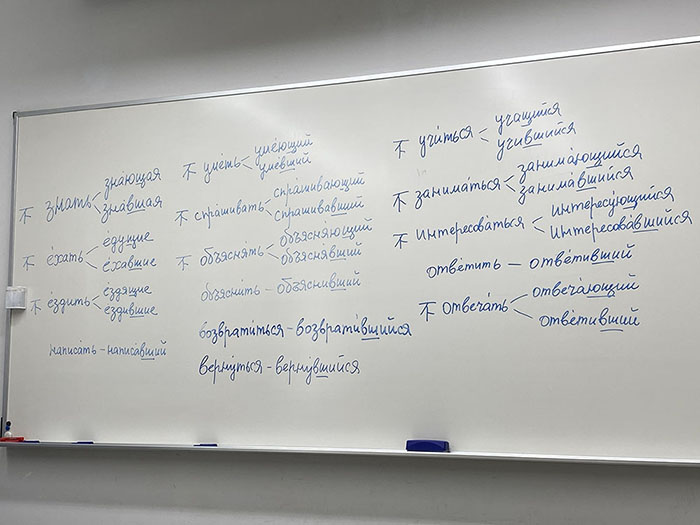 不 знать < зна́ющая
зна́вшая
不 е́хать < е́дущие
е́хавшие
不 е́здить < е́здящие
е́здившие
написа́ть – написа́вший
不 уме́ть < уме́ющий
уме́вший
不 спра́шивать < спра́шивающий
спра́шивавший
不 объясня́ть < объясня́ющий
объясня́вший
объясни́ть – объясни́вший
возврати́ться – возврати́вшийся
верну́ться – верну́вшийся
不 учи́ться < уча́щийся
учи́вшийся
不 занима́ться < занима́ющийся
занима́вшийся
不 интересова́ться < интересу́ющийся
интересова́вшийся
отве́тить – отве́тивший
不 отвеча́ть < отвеча́ющий
отве́тивший